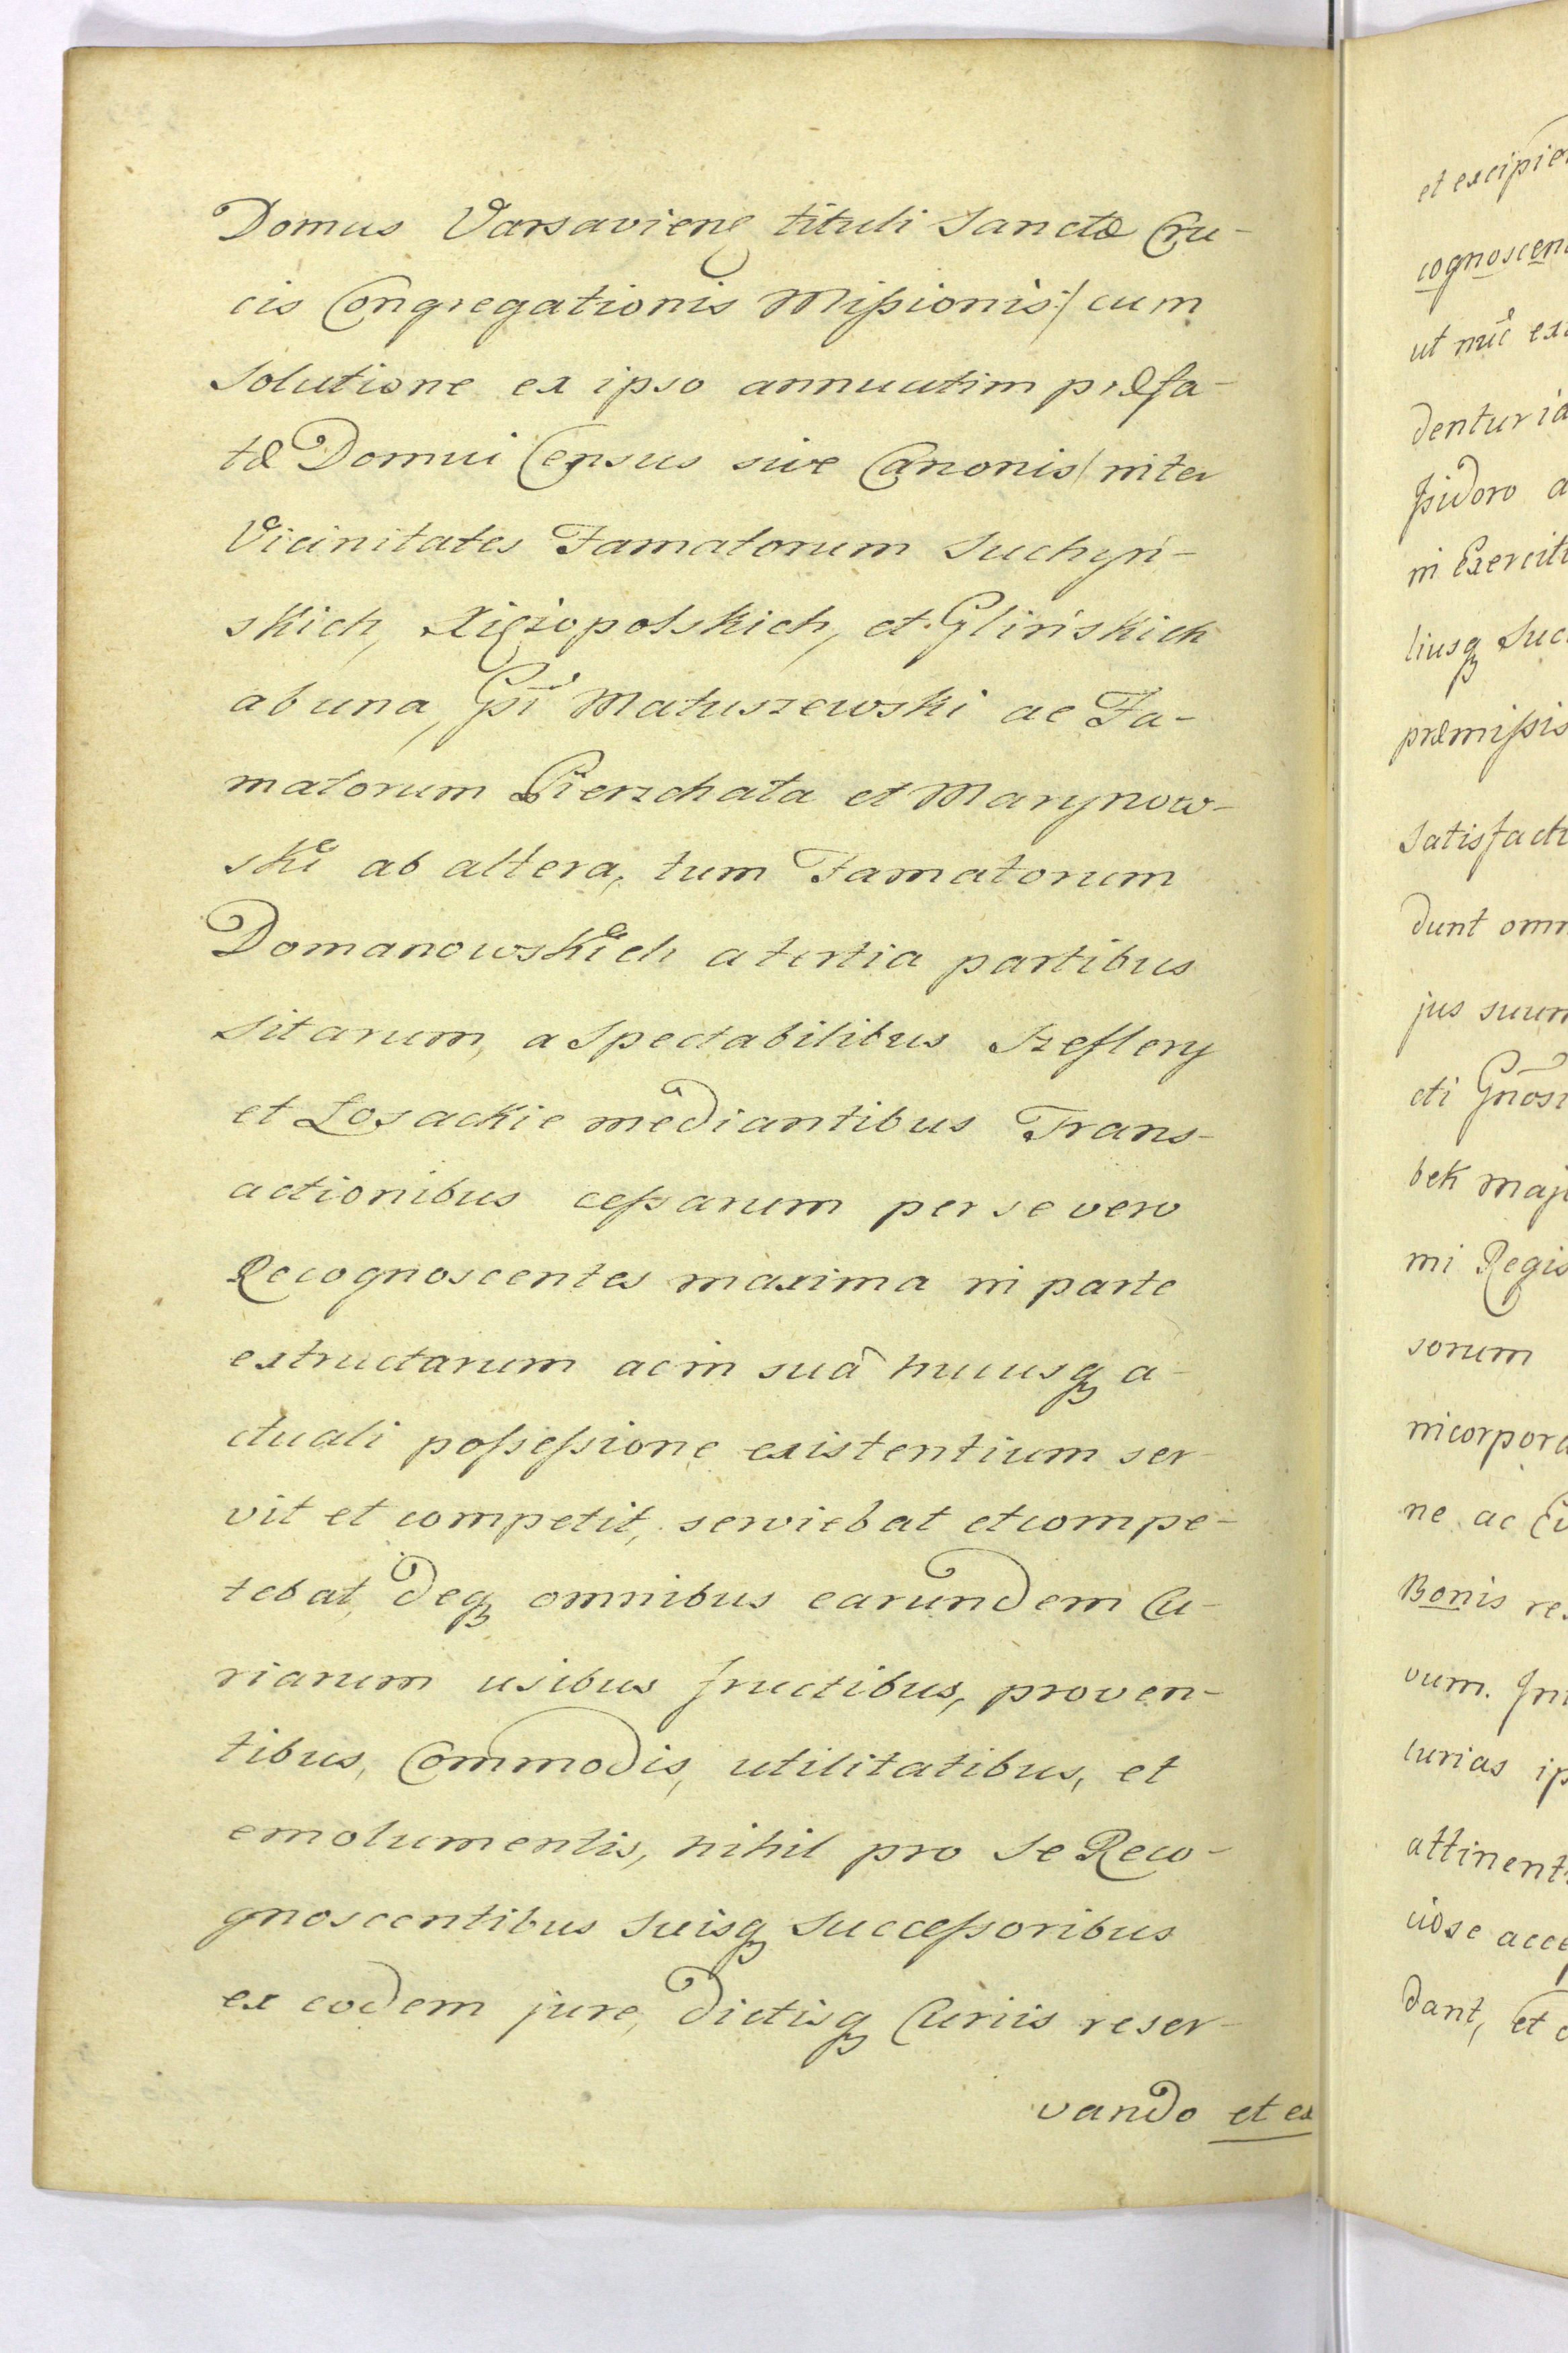 Domus Varsavieng tituli Sanctæ Cru-
cis Congregationis Mißionis:/ cum
Solutione ex ipso annuatim præfa-
tæ Domui Census sive Canonis/ inter
Vicinitates Famatorum Suchyń-
skich, Xiężopolskich, et Glińskich
ab una, Gsi Matuszewski ac Fa-
matorum Pierzchata et Marynow-
ski ab altera, tum Famatorum
Domanowskich a tertia partibus
Sitarum, a Spectabilibus Szeflery
et Łosackie mediantibus Trans-
actionibus ceßarum per se vero
Recognoscentes maxima in parte
extructarum ac in suâ hucusq a-
ctuali poßeßione existentium ser-
vit et competit, serviebat et compe-
tebat, deq omnibus earundem Cu-
riarum usibus fructibus, proven-
tibus, Commodis, utilitatibus, et
emolumentis, nihil pro Se Reco-
gnoscentibus Suisq Succeßoribus
ex eodem jure, dictisq Curiis reser-
vando et ex
et excipie
cognoscen
ut nuc ex
dentur
Isidoro a
in Exercit
liusq Suc
præmißis
Satisfact
dunt omn
jus suum
cti Gnos
bek maj
mi Regis
sorum
incorpora
ne ac
Bonis re
vum. In
Curias ip
attinent
ciose acce
dant, et